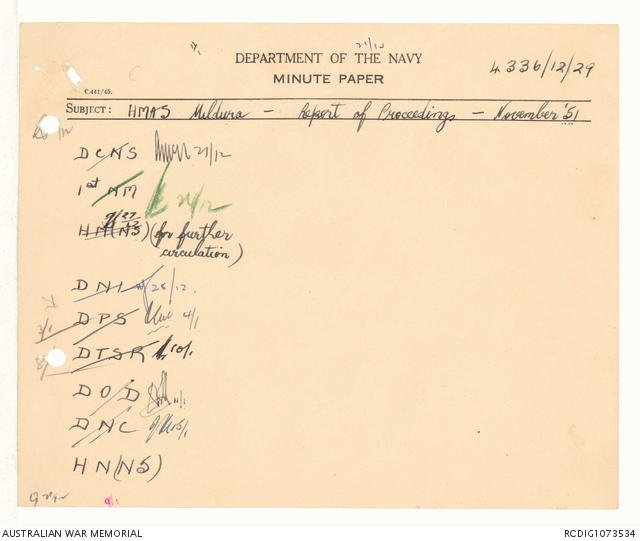 21/12
DEPARTMENT OF THE NAVY
MINUTE PAPER
4336/12/29
C.441/45.
SUBJECT: HMAS Mildura — Report of Proceedings — November '51
DCNS 21/12
1st NM 24/12
HM(NS) (for further circulation)
27/12
DNI 28/12.
DPS 4/1
DTSR 10/1
DOD 11/1
DNC 15/1
HN(NS)
AUSTRALIAN WAR MEMORIAL
RCDIG1073534